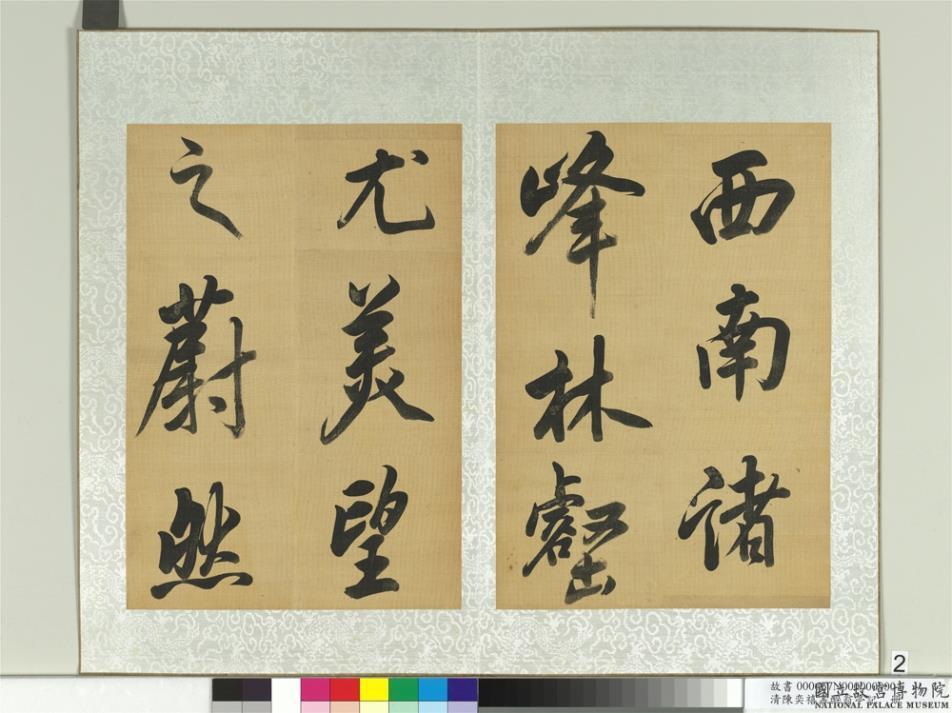 西南諸
峰林壑
尤美望
之蔚然
2
國立故宮博物院
NATIONAL PALACE MUSEUM